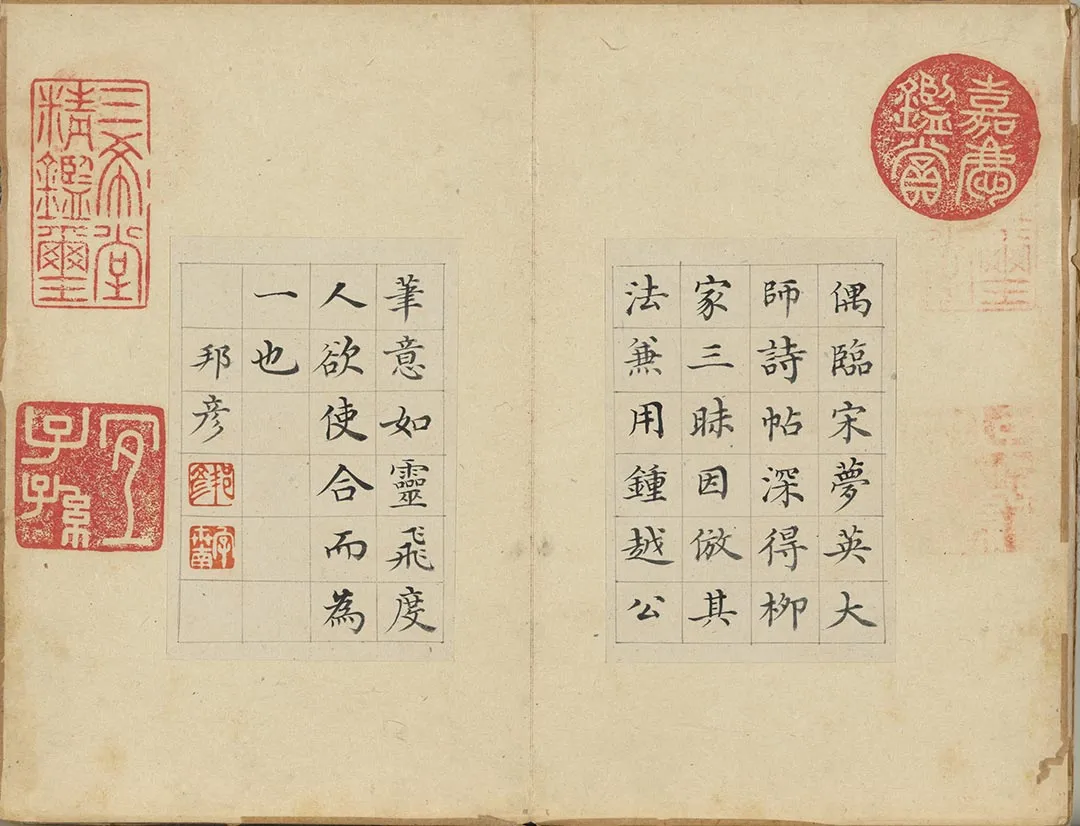 嘉慶
鑑賞
偶臨宋夢英大
師詩帖深得柳
家三昧因倣其
法兼用鍾越公
筆意如靈飛度
人欲使合而為
一也
邦彦
邦彦
字世南
三希堂
精鑑璽
宜
子孫